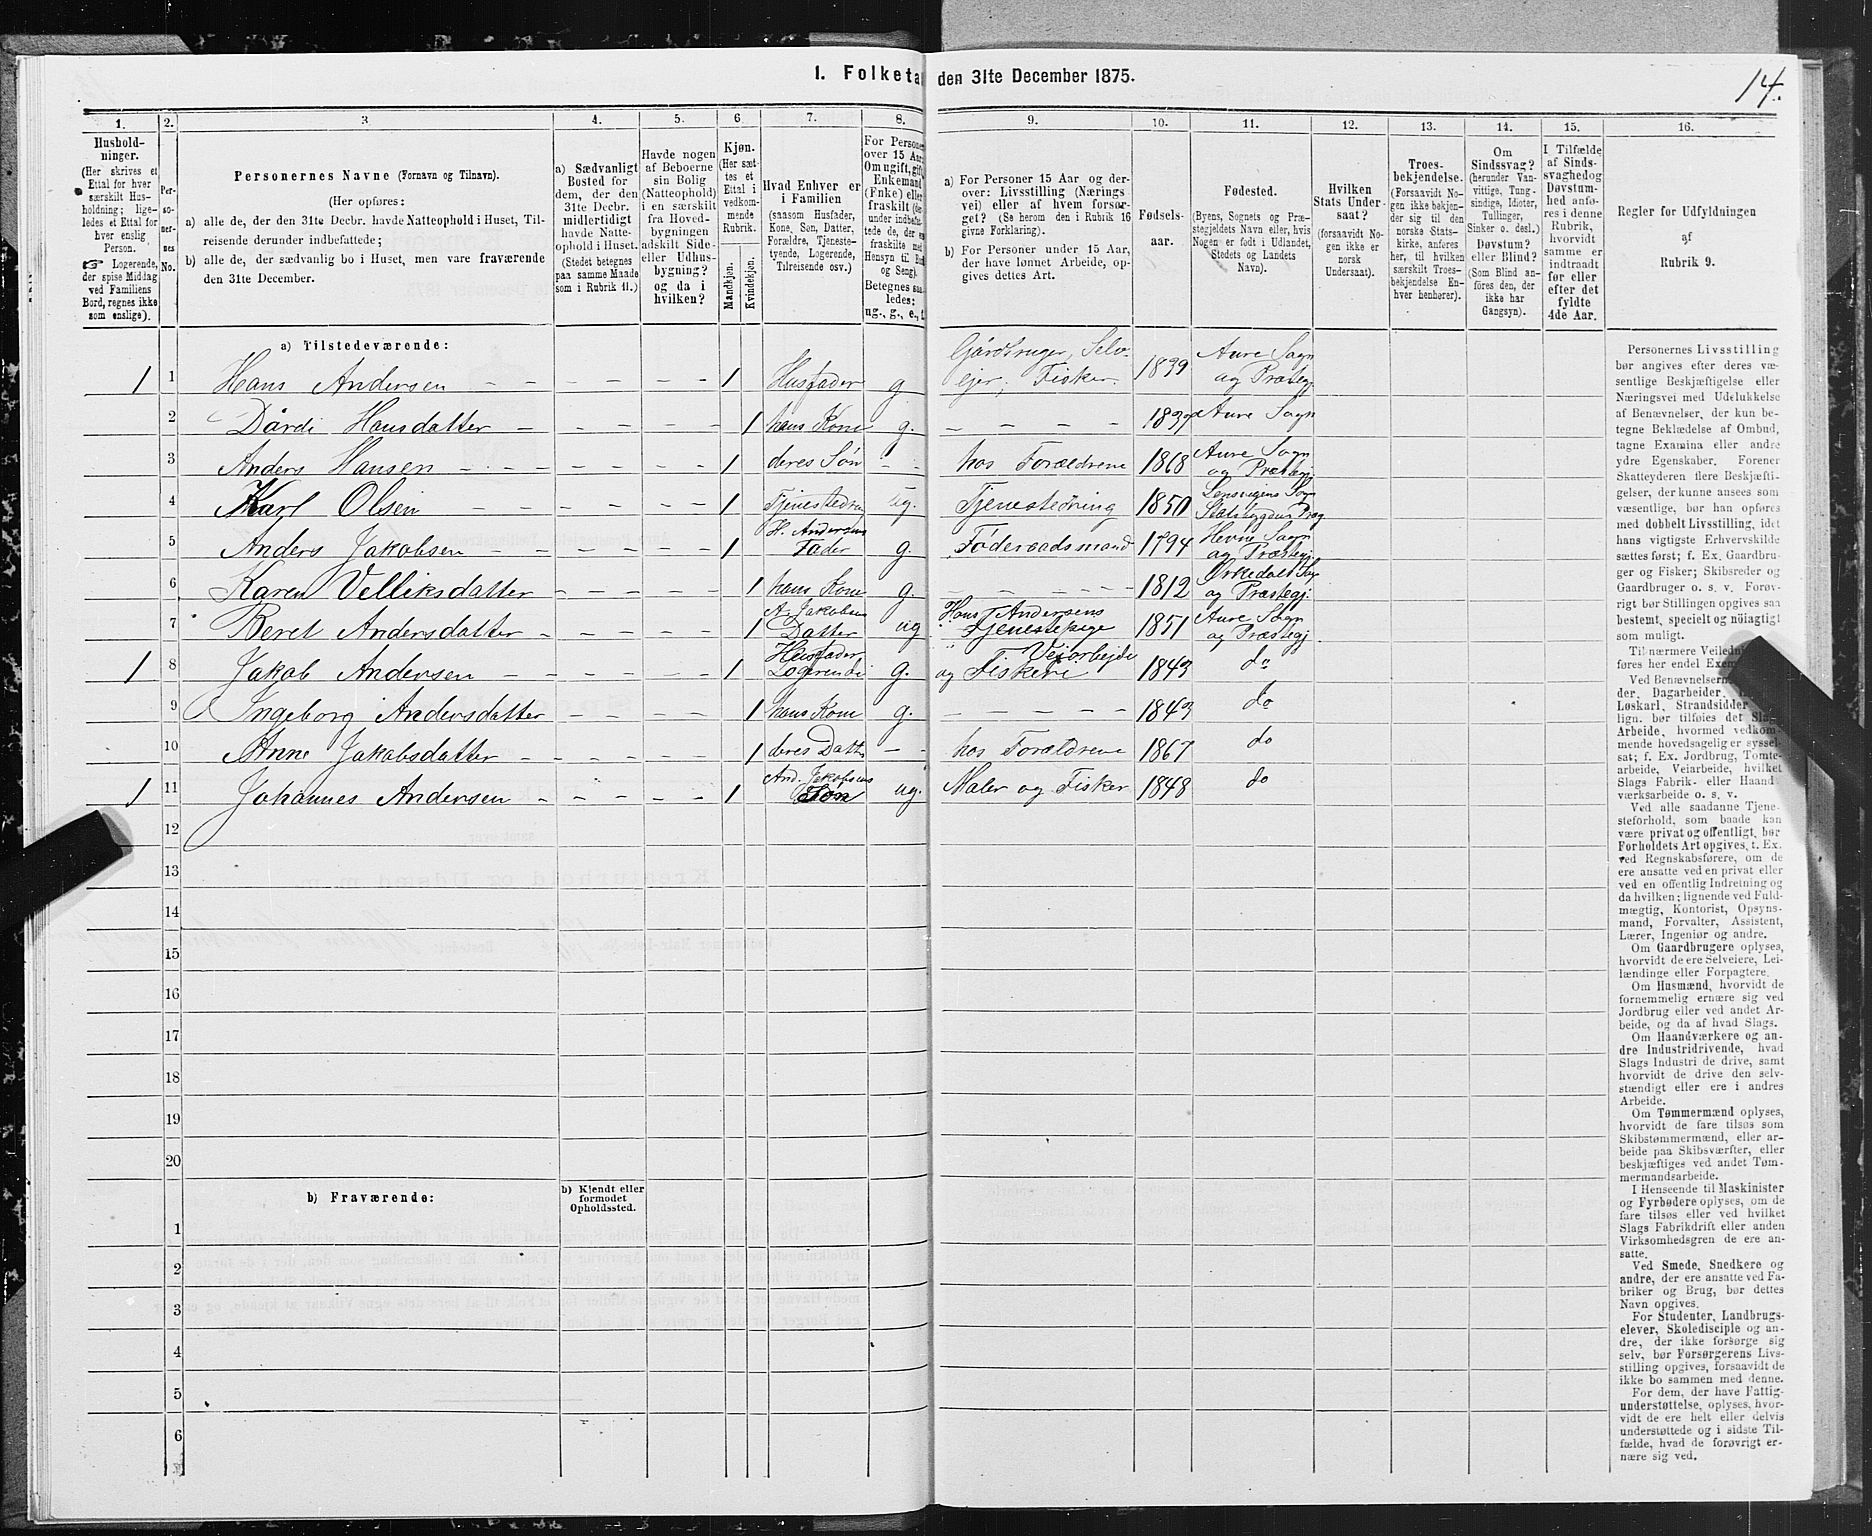 I. Folketæ den 31te December 1875.
14.
1.
2.
3.
4.
5.
6.
7.
8.
9.
10.
11.
12.
13.
14.
15.
16.
Hushold-
ninger.
(Her skrives et
Ettal for hver
særskilt Hus-
holdning; lige-
ledes et Ettal for
hver enslig
Person.
☞ Logerende,
der spise Middag
ved Familiens
Bord, regnes ikke
som enslige).
Per-
so-
ner-
nes
No.
Personernes Navne (Fornavn og Tilnavn).
(Her opføres:
a) alle de, der den 31te Decbr. havde Natteophold i Huset, Til-
reisende derunder indbefattede;
b) alle de, der sædvanlig bo i Huset, men vare fraværende
den 31te December.
a) Sædvanligt
Bosted for
dem, der den
31te Decbr.
midlertidigt
havde Natte-
ophold i Huset.
(Stedet betegnes
paa samme Maade
som i Rubrik 11.)
Havde nogen
af Beboerne
sin Bolig
(Natteophold)
i en særskilt
fra Hoved-
bygningen
adskilt Side-
eller Udhus-
bygning?
og da i
hvilken?
Kjøn.
(Her sæt-
tes et
Ettal i
vedkom-
mende
Rubrik.
Mandkjøn.
Kvindekjøn.
Hvad Enhver er
i Familien
(saasom Husfader,
Kone, Søn, Datter,
Forældre, Tjeneste-
tyende, Logerende,
Tilreisende osv.)
For Persone
over 15 Aar
Om ugift, gift
Enkemand
(Enke) eller
fraskilt
Hensyn til
og Seng).
Betegnes saa-
ledes:
ug., g., e.,
a) For Personer 15 Aar og der-
over: Livsstilling (Nærings
vei) eller af hvem forsør-
get? (Se herom den i Rubrik 16
givne Forklaring).
b) For Personer under 15 Aar,
der have lønnet Arbeide, op-
gives dettes Art.
Fødsels-
aar.
Fødested.
(Byens, Sognets og Præ-
stegjeldets Navn eller, hvis
Nogen er født i Udlandet,
Stedets og Landets
Navn).
Hvilken
Stats Under-
saat?
(forsaavidt No-
gen ikke er
norsk
Undersaat).
Troes-
bekjendelse.
(Forsaavidt No-
gen ikke bekjen-
der sig til den
norske Stats-
kirke, anføres
her, til hvilken
særskilt Troes-
bekjendelse En-
hver henhører).
Om
Sindssvag?
(herunder Van-
vittige, Tung-
sindige, Idioter,
Tullinger,
Sinker o. desl.)
Døvstum?
eller Blind?
(Som Blind an-
føres den, der
ikke har
Gangsyn).
I Tilfælde
af Sinds-
svaghed og
Døvstum-
hed anfø-
res i denne
Rubrik,
hvorvidt
samme er
indtraadt
før eller
efter det
fyldte
4de Aar.
Regler for Udfyldningen
af
Rubrik 9.
a) Tilstedeværende:
1 1 Hans Andersen 1 Husfader g Gårdbruger, Selv- ejer, Fisker. 1839 Aure Sogn og Præstegj.
2 Dårdi Hansdatter 1 hans Kone g. 1837 Aure Sogn
3 Anders Hansen 1 deres Søn hos Forældrene 1868 Aure Sogn og Præstegj
4 Karl Olsen 1 ug. Tjenestedräng 1850
5 Anders Jakobsen 1 H. Andersens Fader g. Föderaadsmand 1794 Hevne Sogn og Præstegj.
6 Karen Velliksdatter 1 hans Kone g. 1812 Ørkedals Sog og Præstegj.
7 Beret Andersdatter 1 A. Jakobsens Datter ug Hans Andersens Tjenestepige 1851 Aure Sogn og Præstegj
1 8 Jakob Andersen 1 Husfader Logerende g. Veiarbejde og Fiskeri 1843 do
9 Ingeborg Andersdatter 1 hans Kone g. 1843 do
10 Anne Jakobsdatter 1 deres Datt hos Forældrene 1867 do
1 11 Johannes Andersen 1 And. Jakobsens Søn ug. Maler og Fisker 1848 do
12
13
14
15
16
17
18
19
20
b) Fraværende:
b) Kjendt eller
formodet
Opholdssted.
1
2
3
4
5
6
Personernes Livsstilling
bør angives efter deres væ-
sentlige Beskjæftigelse eller
Næringsvei med Udelukkelse
af Benævnelser, der kun be-
tegne Beklædelse af Ombud,
tagne Examina eller andre
ydre Egenskaber. Forener
Skatteyderen flere Beskjæfti-
gelser, der kunne ansees som
væsentlige, bør han opføres
med dobbelt Livsstilling, idet
hans vigtigste Erhvervskilde
sættes først; f. Ex. Gaardbru-
ger og Fisker; Skibsreder og
Gaardbruger o. s. v. Forøv-
rigt bør Stillingen opgives saa
bestemt, specielt og nøiagtigt
som muligt.
Til nærmere Veiledn
føres her endel Exem
Ved Benævnelsern
der, Dagarbeider,
Løskarl, Strandsidder
lign. bør tilføies det Slag
Arbeide, hvormed vedkom-
mende hovedsagelig er syssel-
sat; f. Ex. Jordbrug, Tomte-
arbeide, Veiarbeide, hvilket
Slags Fabrik- eller Haand
værksarbeide o. s. v.
Ved alle saadanne Tjene-
steforhold, som baade kan
være privat og offentligt, bør
Forholdets Art opgives, t. Ex.
ved Regnskabsførere, om de
ere ansatte ved en privat eller
ved en offentlig Indretning og
da hvilken; lignende ved Fuld-
mægtig, Kontorist, Opsyns-
mand, Forvalter, Assistent,
Lærer, Ingeniør og andre.
Om Gaardbrugere oplyses,
hvorvidt de ere Selveiere, Lei-
lændinge eller Forpagtere.
Om Husmænd, hvorvidt de
fornemmelig ernære sig ved
Jordbrug eller ved andet Ar-
beide, og da af hvad Slags.
Om Haandværkere og an-
dre Industridrivende, hvad
Slags Industri de drive, samt
hvorvidt de drive den selv-
stændigt eller ere i andres
Arbeide.
Om Tømmermænd oplyses,
hvorvidt de fare tilsøs som
Skibstømmermænd, eller ar-
beide paa Skibsværfter, eller
beskjæftiges ved andet Tøm-
mermandsarbeide.
I Henseende til Maskinister
og Fyrbødere oplyses, om de
fare tilsøs eller ved hvilket
Slags Fabrikdrift eller anden
Virksomhedsgren de ere an-
satte.
Ved Smede, Snedkere og
andre, der ere ansatte ved Fa-
briker og Brug, bør dettes
Navn opgives.
For Studenter, Landbrugs-
elever, Skoledisciple og an-
dre, der ikke forsørge sig
selv, bør Forsørgerens Livs-
stilling opgives, forsaavidt de
ikke bo sammen med denne.
For dem, der have Fattig-
understøttelse, oplyses, hvor-
vidt de ere helt eller delvis
understøttede og i sidste Til-
fælde, hvad de forøvrigt er-
nære sig ved.